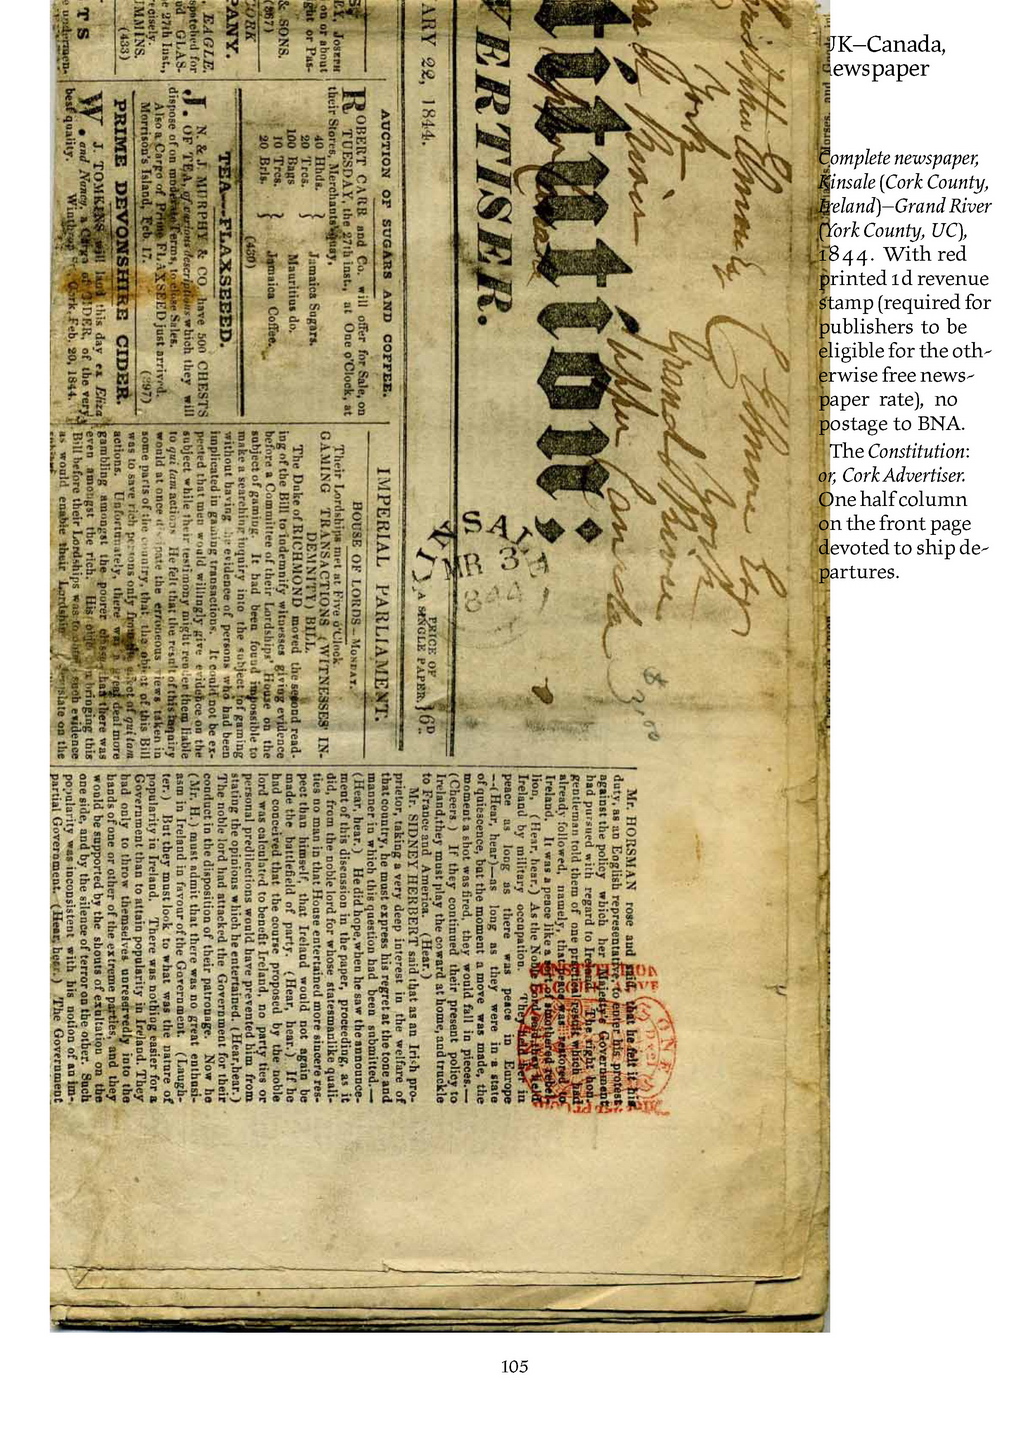 UK–Canada,
newspaper
Complete newspaper,
Kinsale (Cork County,
Ireland)–Grand River
(York County, UC),
1844. With red
printed 1d revenue
stamp (required for
publishers to be
eligible for the oth-
erwise free news-
paper rate), no
postage to BNA.
The Constitution:
or, Cork Advertiser.
One half column
on the front page
devoted to ship de-
partures.
Grand River
York
Upper Canada
VERTISER.
ARY 22, 1844.
PRICE OF
A SINGLE PAPER,
MR 3
1844
AUCTION OF SUGARS AND COFFEE.
ROBERT CARR and Co. will offer for Sale, on
TUESDAY, the 27th inst., at One o'Clock, at
their Stores, Merchants'-quay,
40 Hhds.
20 Tres. } Jamaica Sugars.
100 Bags Mauritius do.
10 Tres.
20 Brls. } Jamaica Coffee.
(439)
TEA—FLAXSEED.
J. N. & J. MURPHY & CO. have 500 CHESTS
OF TEA, of various descriptions which they will
dispose of on moderate Terms, to close Sales.
Also a Cargo of Prime FLAXSEED just arrived.
Morrison's Island, Feb. 17. (397)
PRIME DEVONSHIRE CIDER.
W. J. TOMKINS will land this day ex Eliza
and Nancy, a Cargo of CIDER, of the very
best quality. Cork, Feb. 20, 1844.
EAGLE.
PANY.
& SONS.
(433)
IMPERIAL PARLIAMENT.
HOUSE OF LORDS—MONDAY.
Their Lordships met at Five o'Clock.
GAMING TRANSACTIONS (WITNESSES' IN-
DEMNITY) BILL.
The Duke of RICHMOND moved the second read-
ing of the Bill to indemnify witnesses giving evidence
before a Committee of their Lordships' House on the
subject of gaming. It had been found impossible to
make a searching inquiry into the subject of gaming
without having the evidence of persons who had been
implicated in gaming transactions. It could not be ex-
pected that men would willingly give evidence on the
subject while their testimony might render them liable
to qui tam actions. He felt that the result of this inquiry
would at once dissipate the erroneous views taken in
some parts of the country, that the object of this Bill
was to save rich persons only from the effect of qui tam
actions. Unfortunately, there was a great deal more
gambling amongst the poorer classes than there was
even amongst the rich. His object in bringing this
Bill before their Lordships was to obtain such evidence
as would enable their Lordships to legislate on the
Mr. HORSMAN rose and said, that he felt it his
duty, as an English representative, to enter his protest
against the policy which her Majesty's Government
had pursued with regard to Ireland. The right hon.
gentleman told them of one practical result which had
already followed, namely, that peace was restored to
Ireland. It was a peace like a sort of smothered rebel-
lion. (Hear, hear.) As the Noble Lord said they held
Ireland by military occupation. They held her in
peace as long as there was peace in Europe
—(Hear, hear)—as long as they were in a state
of quiescence, but the moment a move was made, the
moment a shot was fired, they would fall in pieces.—
(Cheers.) If they continued their present policy to
Ireland, they must play the coward at home, and truckle
to France and America. (Hear.)
Mr. SIDNEY HERBERT said that as an Irish pro-
prietor, taking a very deep interest in the welfare of
that country, he must express his regret at the tone and
manner in which this question had been submitted.—
(Hear, hear.) He did hope, when he saw the announce-
ment of this discussion in the paper, proceeding, as it
did, from the noble lord for whose statesmanlike quali-
ties no man in that House entertained more sincere res-
pect than himself, that Ireland would not again be
made the battlefield of party. (Hear, hear.) If he
had conceived that the course proposed by the noble
lord was calculated to benefit Ireland, no party ties or
personal predilections would have prevented him from
stating the opinions which he entertained. (Hear, hear.)
The noble lord had attacked the Government for their
conduct in the disposition of their patronage. Now he
(Mr. H.) must admit that there was no great enthusi-
asm in Ireland in favour of the Government. (Laugh-
ter.) But they must look to what was the nature of
popularity in Ireland. There was nothing easier for a
Government than to attain popularity in Ireland. They
had only to throw themselves unreservedly into the
hands of one or other of the extreme parties, and they
would be supported by the shouts of exultation on the
one side, and by the silence of terror on the other. Such
popularity was inconsistent with his notion of an im-
partial Government. (Hear, hear.) The Government
105